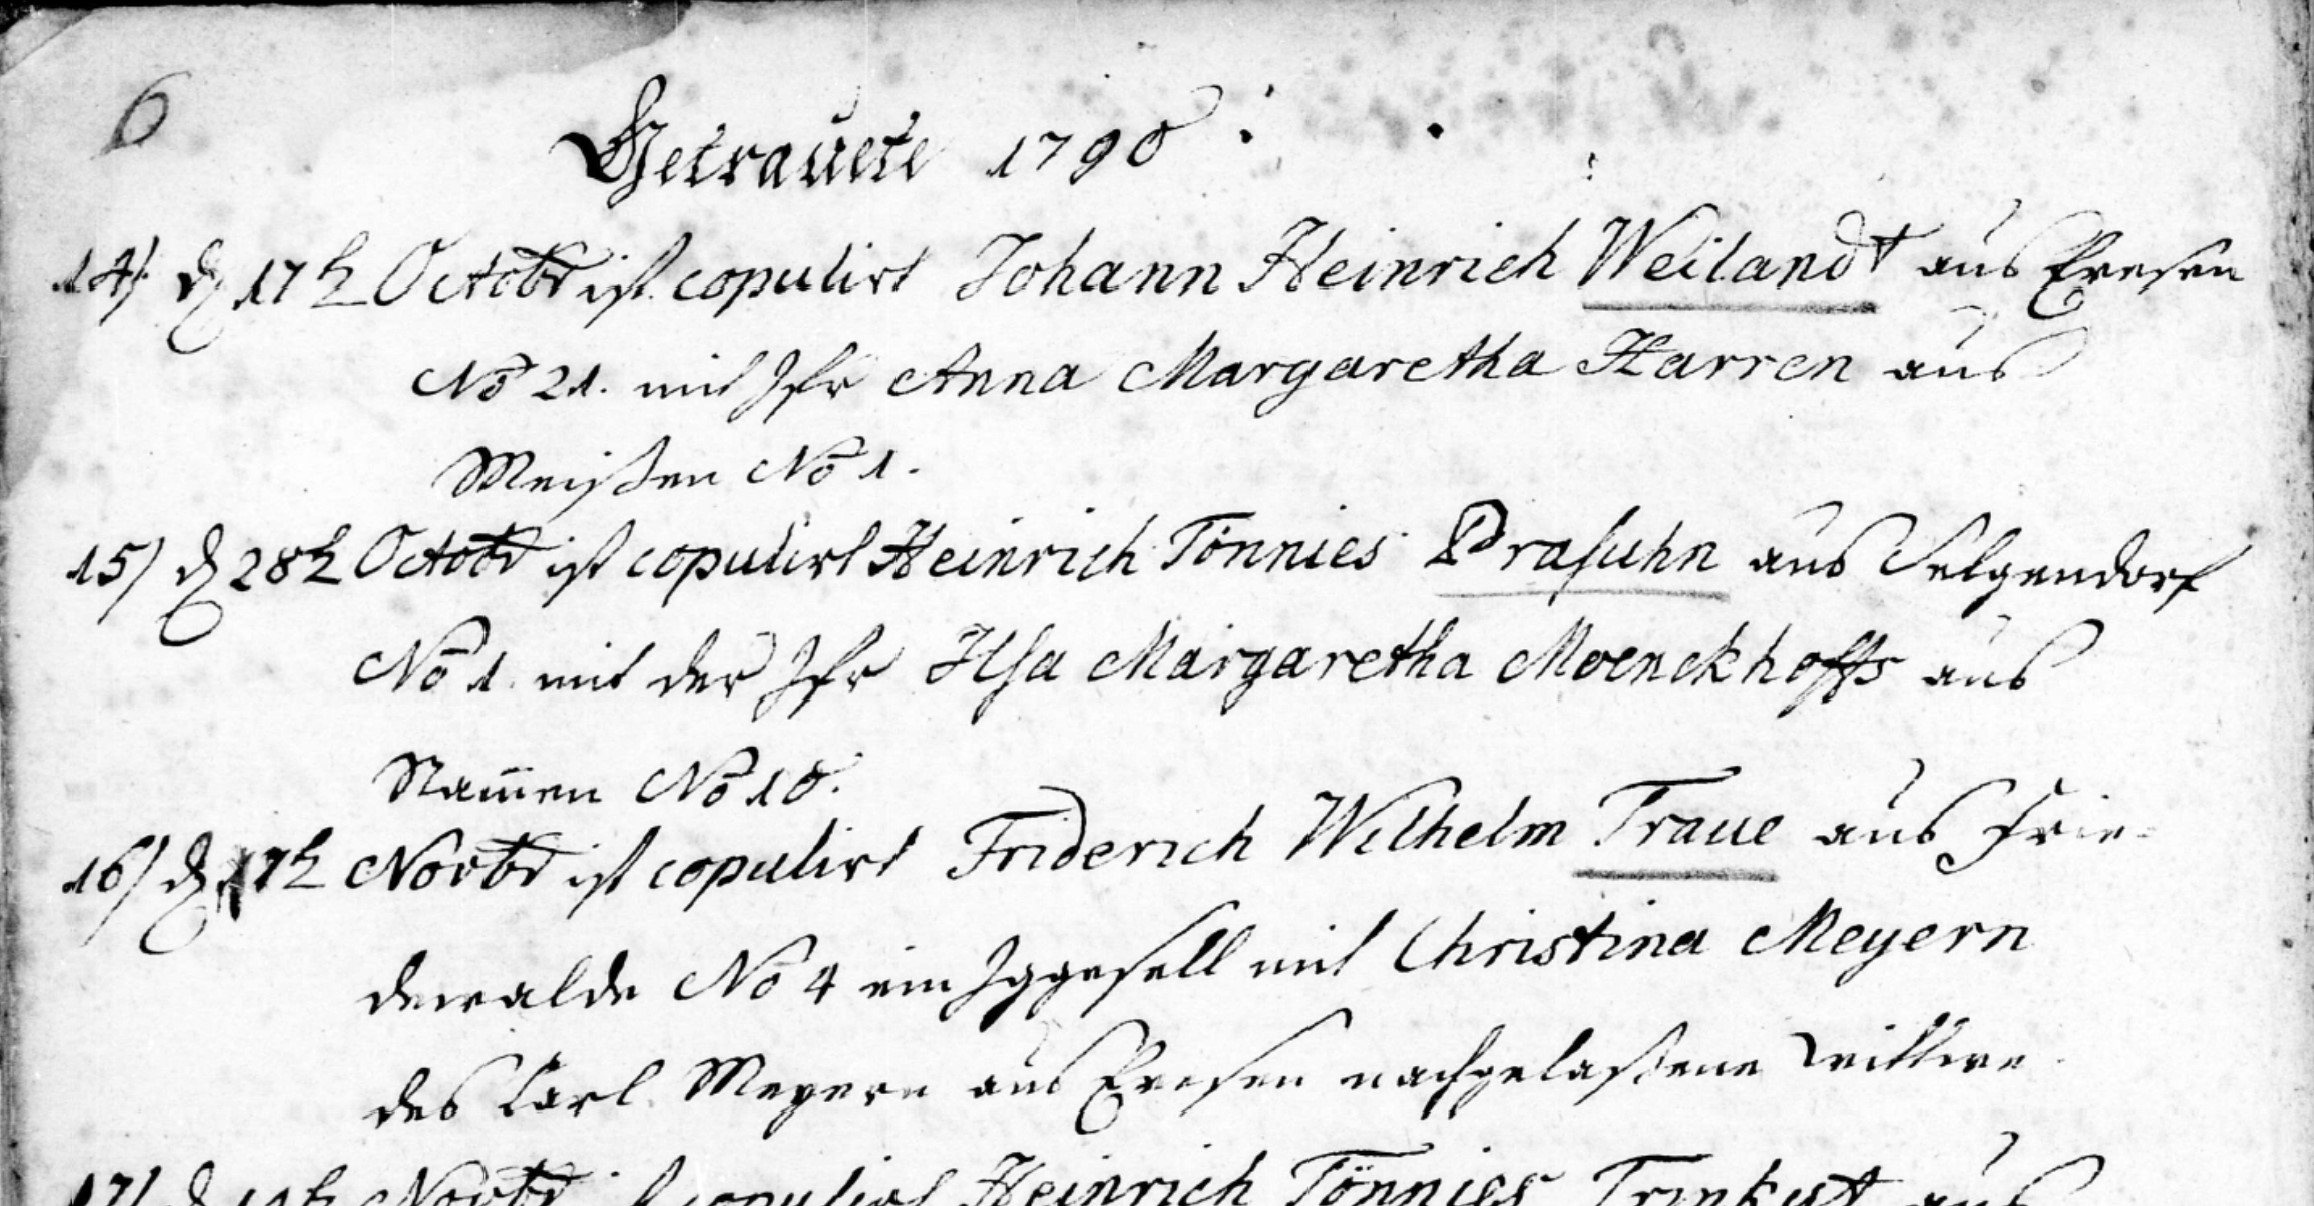 6
Getrauete 1790
14) d 17t Octobr ist copulirt Johann Heinrich Weilandt aus Evesen
No 21. mit Jfr Anna Margaretha Harren aus
Meißen No 1.
15) d 28t Octobr ist copulirt Heinrich Tönnies Prasuhn aus Selgendorf
No 1. mit der Jfr Ilsa Margaretha Moenckhoffs aus
Nam̄en No 10.
16) d 17t Novbr ist copulirt Friderich Wilhelm Traue aus Frie-
dewalde No 4 ein Jggesell mit Christina Meyern
des Carl Meyern aus Evesen nachgelaßene Wittwe
17) Novbr ist copulirt Heinrich Tönnies aus